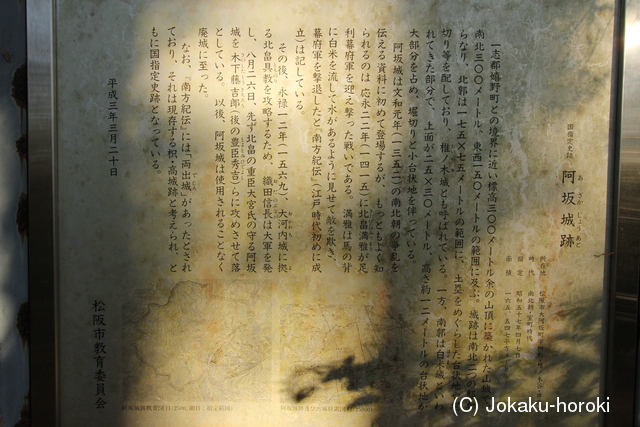 国指定史跡
阿坂城跡
あざかじょうあと
所在地 松阪市大阿坂町
時代 南北朝・室町時代
指定 昭和五十七年四月七日
面積
一志郡嬉野町との境界に近い標高三〇〇メートル余の山頂に築かれた山城
南北三〇〇メートル、東西一五〇メートルの範囲に及ぶ。城跡は南北二
らなり、北郭は一七五×七五メートルの範囲に、土塁をめぐらした台状地
切り等を配しており、椎ノ木城とも呼ばれている。一方、南郭は白米城といわ
れてきた部分で、上面が二五×三〇メートル、高さ約一二メートルの台状地が
大部分を占め、堀切りと小台状地を伴っている。
阿坂城は文和元年(一三五二)の南北朝の争乱を
伝える資料に初めて登場するが、もっともよく知
られるのは応永二二年(一四一五)に北畠満雅が足
利幕府軍を迎え撃った戦いである。満雅は馬の背
に白米を流して水があるように見せて敵を欺き、
幕府軍を撃退したと『南方紀伝』(江戸時代初めに成
立)は記している。
その後、永禄一二年(一五六九)、大河内城に拠
る北畠具教を攻略するため、織田信長は大軍を発
し、八月二六日、先ず北畠の重臣大宮氏の守る阿坂
城を木下藤吉郎(後の豊臣秀吉)らに攻めさせて落
としている。以後、阿坂城は使用されることなく
廃城に至った。
なお、『南方紀伝』には「両出城」があったとされ
ており、それは現存する枳・高城跡と考えられ、と
もに国指定史跡となっている。
平成三年三月二十日
松阪市教育委員会
(C) Jokaku-horoki